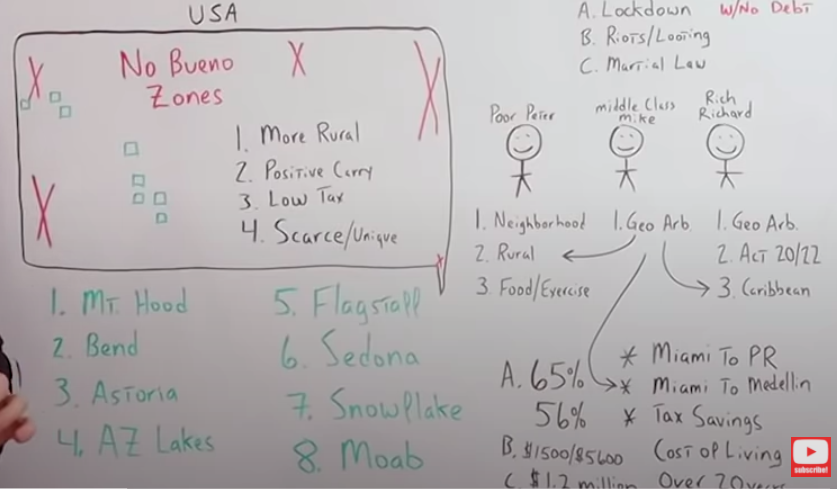 USA
No Bueno
Zones
1. More Rural
2. Positive Carry
3. Low Tax
4. Scarce/Unique
1. Mt. Hood
2. Bend
3. Astoria
4. AZ Lakes
5. Flagstaff
6. Sedona
7. Snowflake
8. Moab
A. Lockdown W/No Debt
B. Riots/Looting
C. Martial Law
Poor Peter
1. Neighborhood
2. Rural
3. Food/Exercise
middle Class
mike
1. Geo Arb
Rich
Richard
1. Geo Arb.
2. Act 20/22
3. Caribbean
A. 65% * Miami To PR
* Miami To Medellin
56% * Tax Savings
B. $1500/$5600 Cost of Living
C. $1.2 million Over 20 years
Subscribe!